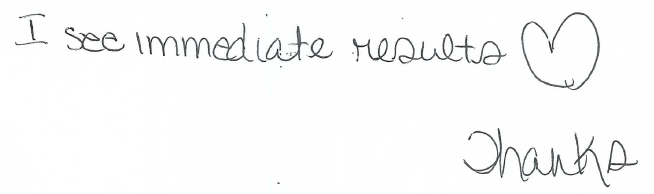 I see immediate results ♡
Thanks